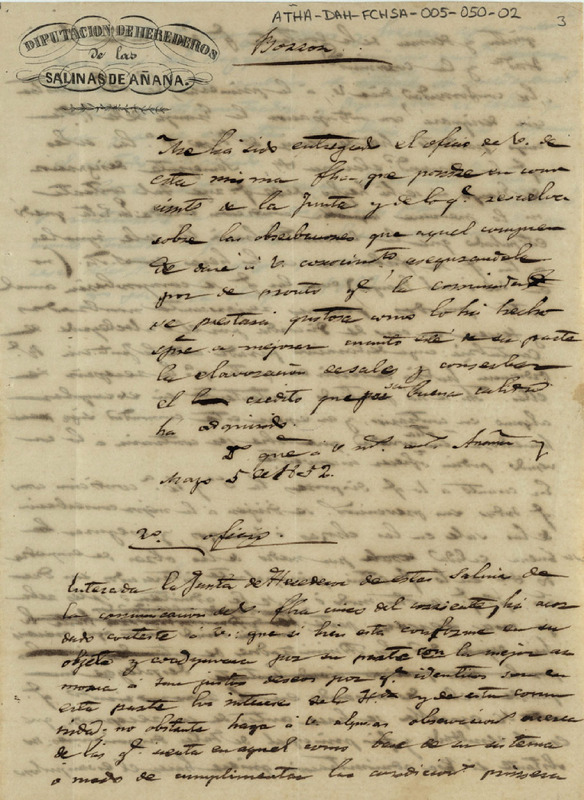 ATHA-DAH-FCHSA-005-050-02
3
DIPUTACION DE HEREDEROS
de las
SALINAS DE AÑANA.
Borron
Me ha sido entregado el oficio de V. de
esta misma fha. que pondre en conoci
miento de la Junta y de lo q.e resuelva
sobre las observaciones que aquel compren
de dare á V. conocimto. asegurandole
por de pronto q.e la comunidad
se prestará gustosa como lo ha hecho
spre. a mejorar cuanto esté de su parte
la elavoracion de sales y conserbar
el credito que por su buena calidad
ha adquirido.
D. gue. á V. ms. as. Añana y
Mayo 5 de 1852.
2o. oficio.
Enterada la Junta de Herederos de estas Salinas de
la comunicacion de V. fha. cinco del corriente, ha acor
dado conteste á V.: que si bien esta conforme en su
objeto y coadyuvara por su parte con la mejor ar
monia a sus justos deseos por q.e identicos son en
esta parte los intereses de la Hda. y de esta comu
nidad; no obstante haga á V. algunas observaciones acerca
de las q.e sienta en aquel como base de su sistema
o modo de cumplimentar las condiciones primera